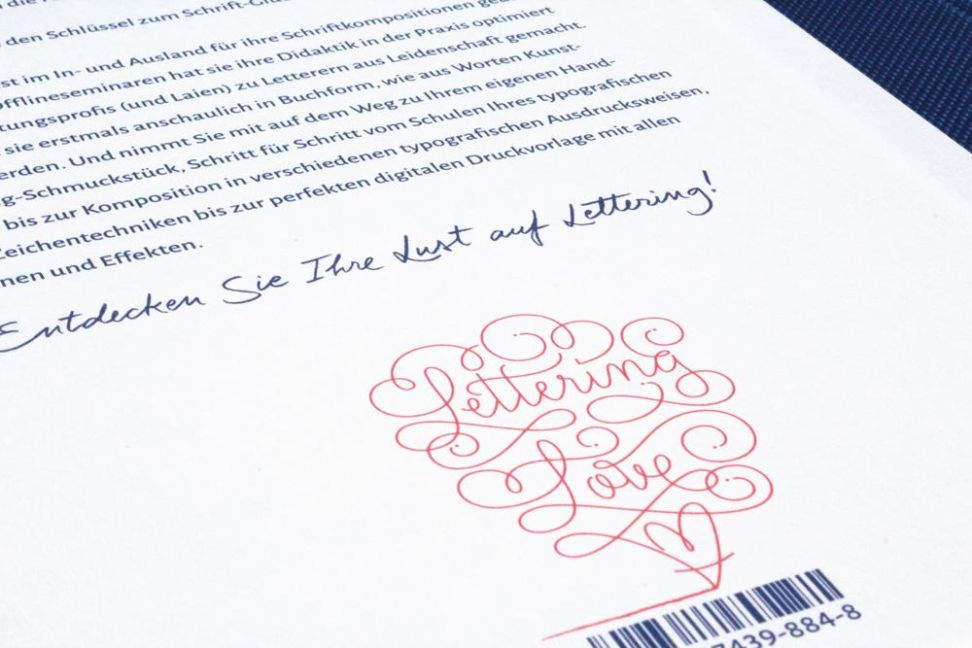 den Schlüssel zum Schrift-
st im In- und Ausland für ihre Schriftkompositionen
fflineseminaren hat sie ihre Didaktik in der Praxis optimiert
tungsprofis (und Laien) zu Letterern aus Leidenschaft gemacht.
sie erstmals anschaulich in Buchform, wie aus Worten Kunst-
erden. Und nimmt Sie mit auf dem Weg zu Ihrem eigenen Hand-
g-Schmuckstück, Schritt für Schritt vom Schulen Ihres typografischen
bis zur Komposition in verschiedenen typografischen Ausdrucksweisen,
Zeichentechniken bis zur perfekten digitalen Druckvorlage mit allen
nen und Effekten.
Entdecken Sie Ihre Lust auf Lettering!
Lettering
Love
7439-884-8